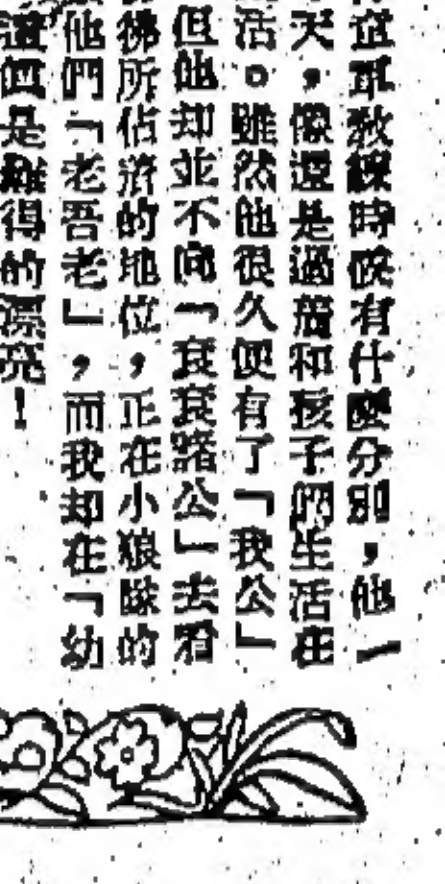 敎練時候有什麽分別，他一
天，像還是過着和孩子們生活在
活。雖然他很久便有了「我公」
但他却並不向「袞袞諸公」去看
彿所佔的地位，正在小狼隊的
他們「老吾老」，而我却在「幼
這個是難得的漂亮！